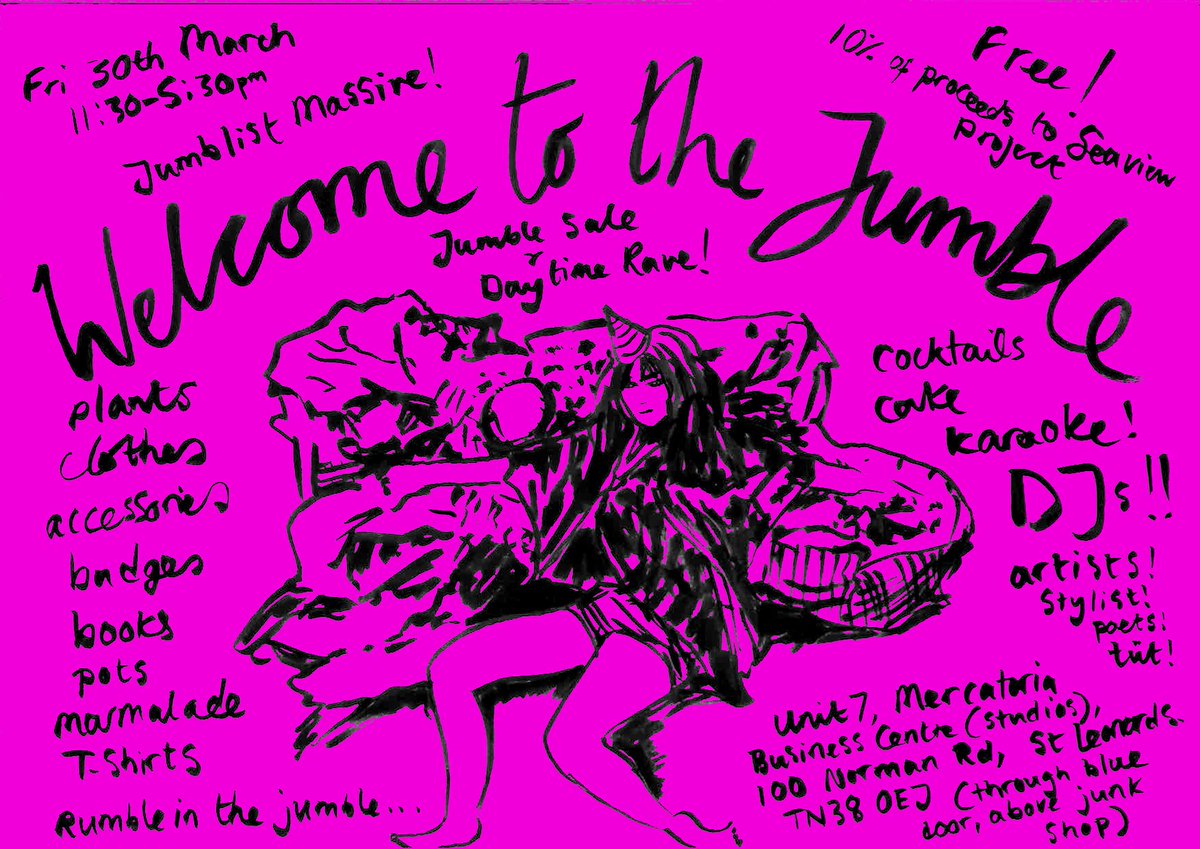 Fri 30th March
11:30-5:30pm
Jumblist Massive!
Free!
10% of proceeds to Seaview
project
Welcome to the Jumble
Jumble Sale
+
Daytime Rave!
plants
clothes
accessories
badges
books
pots
marmalade
T-Shirts
Rumble in the jumble...
cocktails
cake
karaoke!
DJs!!
artists!
stylist!
poets!
tüt!
Unit 7, Mercatoria
Business Centre (studios),
100 Norman Rd, St Leonards.
TN38 0EJ (through blue
door, above junk
shop)